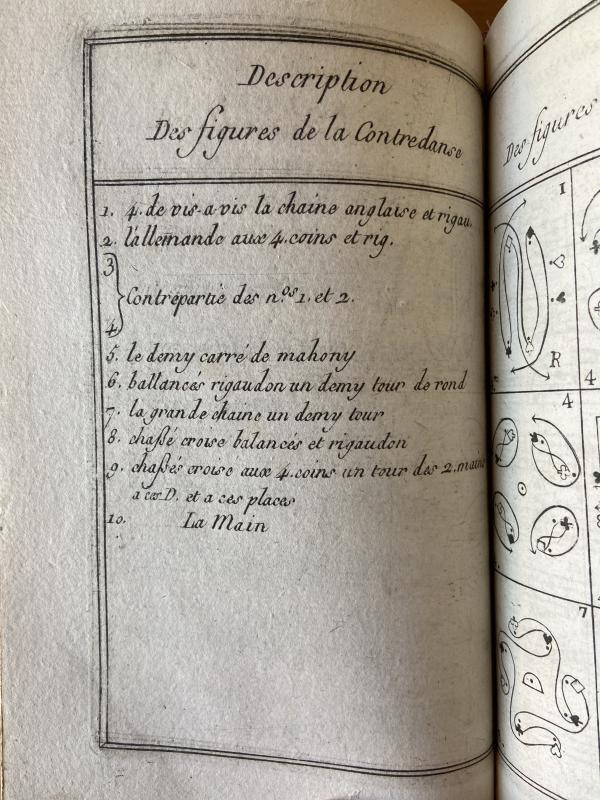 Description
Des figures de la Contredanse
1. 4. de vis-a vis la chaine anglaise et rigau.
2. l'allemande aux 4. coins et rig.
3
Contrepartie des n.os 1. et 2.
4
5. le demy carré de mahony
6. ballancés rigaudon un demy tour de rond
7. la grande chaine un demy tour
8. chassé croise balancés et rigaudon
9. chassés croise aux 4. coins un tour des 2. mains
a ces D. et a ces places
10. La Main
Des figures
1
R
4
4
7
D